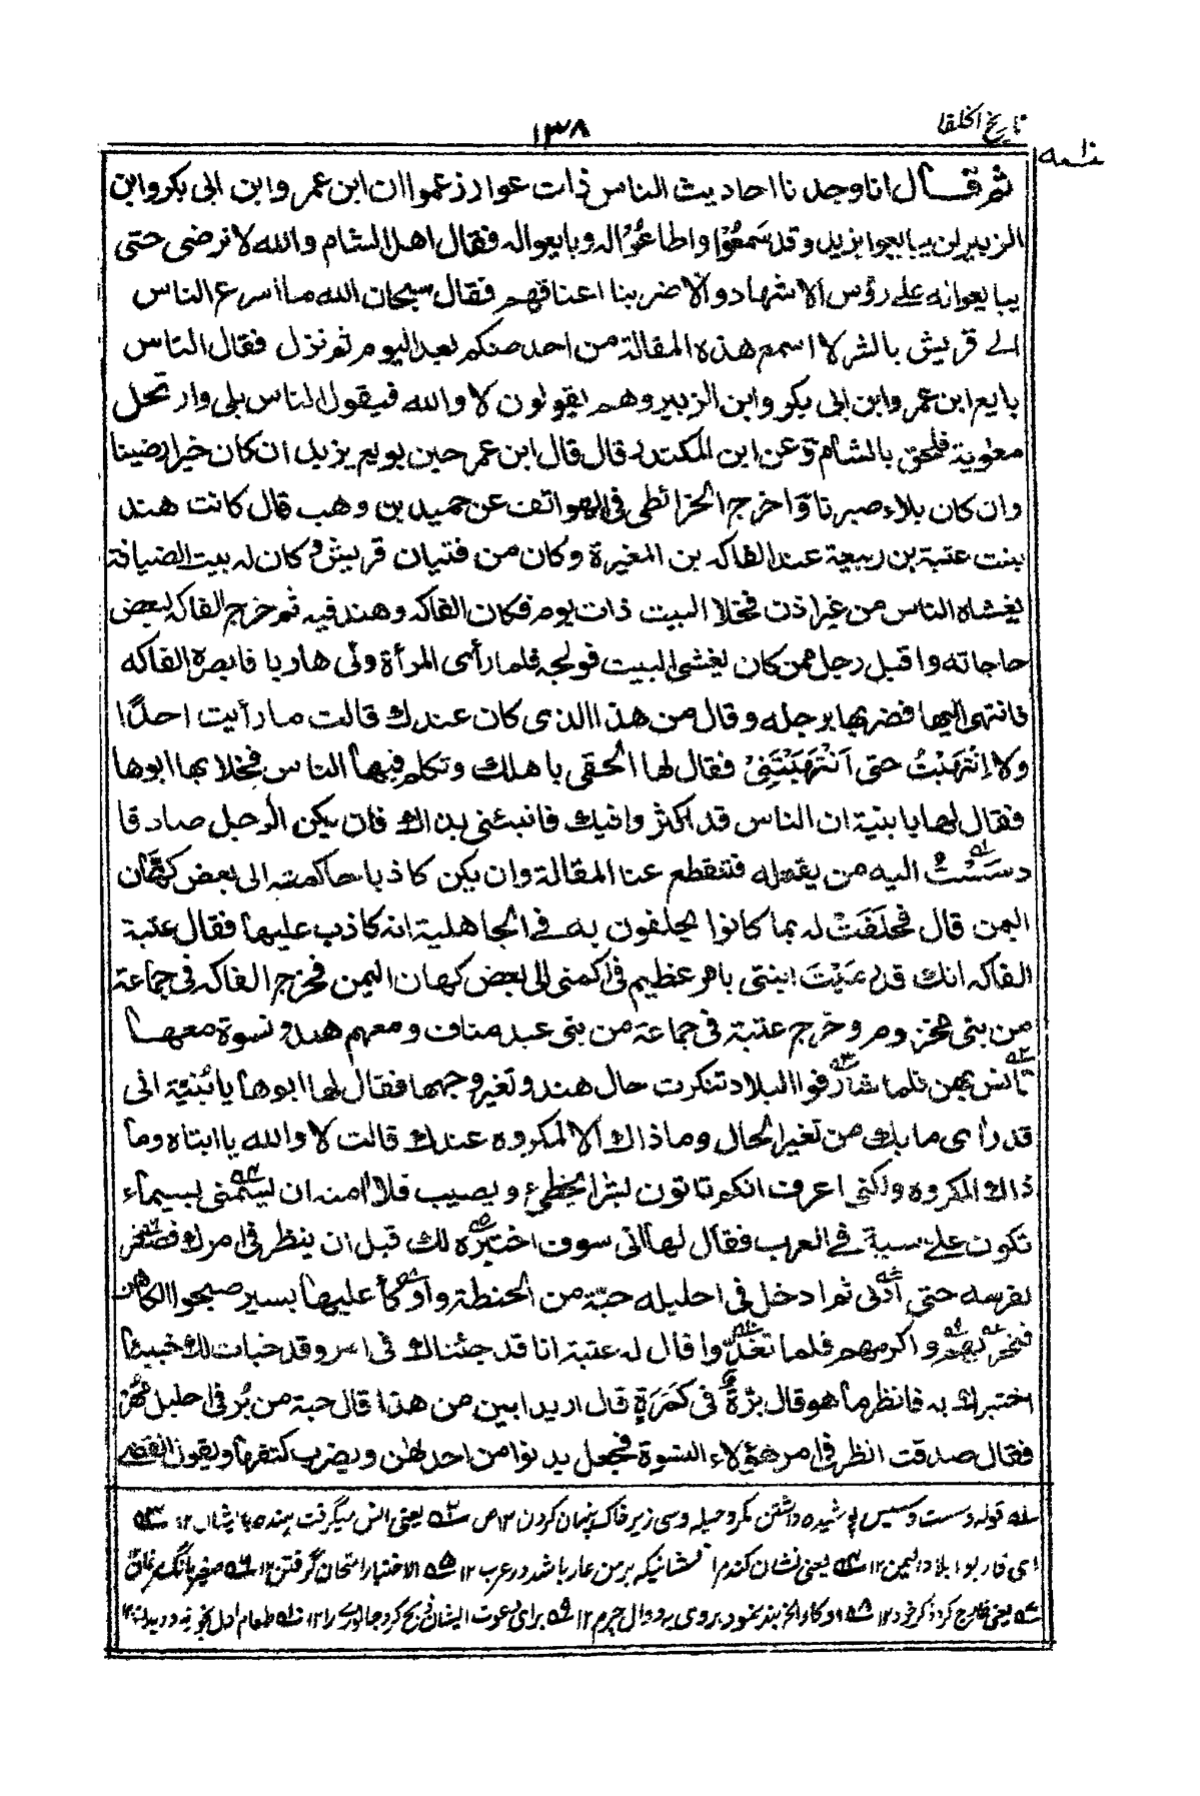 تاريخ الخلفا
١٣٨
ثم قال انا وجدنا احاديث الناس ذات عوار زعموا ان ابن عمر وابن ابى بكر وابن
الزبير لن يبايعوا يزيد وقد سَمعُوْا واطاعُوْا له وبايعوا له فقال اهل الشام والله لا نرضى حتى
يبايعوا له على رؤس الاشهاد والا ضربنا اعناقهم فقال سبحان الله ما اسرع الناس
الى قريش بالشر لا اسمع هذه المقالة من احد منكم بعد اليوم ثم نزل فقال الناس
بايع ابن عمر وابن ابى بكر وابن الزبير وهم يقولون لا والله فيقول الناس بلى وارتحل
معوية فلحق بالشام وعن ابن المكندر قال قال ابن عمر حين بويع يزيد ان كان خيرا رضينا
وان كان بلاء صبرنا واخرج الخرائطى فى الهواتف عن حميد بن وهب قال كانت هند
بنت عتبة بن ربيعة عند الفاكه بن المغيرة وكان من فتيان قريش وكان له بيت الضيافة
يغشاه الناس من غير اذن فخلا البيت ذات يوم فكان الفاكه وهند فيه ثم خرج الفاكه لبعض
حاجاته واقبل رجل ممن كان يغشى البيت فولجه فلما رأى المرأة ولّى هاربا فابصره الفاكه
فانتهى اليها فضربها برجله وقال من هذا الذى كان عندك قالت ما رأيت احدًا
ولا اِنْتَهَبْتُ حتى اَنْتَهَبْتَنِىْ فقال لها الحقى باهلك وتكلم فيها الناس فخلا بها ابوها
فقال لها يا بنية ان الناس قد اكثروا فيك فانبئنى بذاك فان يكن الرجل صادقا
دسست اليه من يقتله فتنقطع عنا المقالة وان يكن كاذبا حاكمته الى بعض كهّان
اليمن قال فحلَفَتْ له بما كانوا يحلفون به فى الجاهلية انه كاذب عليها فقال عتبة
الفاكه انك قد رَمَيْتَ ابنتى بامر عظيم فحاكمنى الى بعض كهان اليمن فخرج الفاكه فى جماعة
من بنى مخزوم وخرج عتبة فى جماعة من بنى عبد مناف ومعهم هند ونسوة معها
تأنس بهن فلما شارفوا البلاد تنكرت حال هند وتغير وجهها فقال لها ابوها يا بُنيّة انى
قد رأى ما بك من تغير الحال وما ذاك الا لمكروه عندك قالت لا والله يا ابتاه وما
ذاك لمكروه ولكنى اعرف انكم تاتون بشرا يخطئ ويصيب فلا امنه ان يسمنى بسيماء
تكون على سبة فى العرب فقال لها انى سوف اختبره لك قبل ان ينظر فى امرك فصفر
بفرسه حتى ادلى ثم ادخل فى احليله حبّة من الحنطة واوكأ عليها بسير صبحوا الكاهن
فنحر لهم واكرمهم فلما تغدّوا قال له عتبة انا قد جئناك فى امر وقد خبات لك خبيئا
اختبرك به فانظر ما هو قال بُرّة فى كَمَرَة قال اريد ابين من هذا قال حبة من بُر فى احليل مُهر
فقال صدقت انظر فى امر هؤلاء النسوة فجعل يدنوا من احدلهن ويضرب كتفها ويقول انهضى
قوله دست دسيس پوشيده داشتن مكر وحيله وسى زير خاك پنهان كردن ١٢ ص يعنى انس ميگرفت هنده
اى قاربوا بلاد اليمن ١٢ يعنى نشان كندم نشانيكه بر من عار باشد در عرب ١٢ الاختبار امتحان گرفتن ١٢ صفير بانگ مرغان
يعنى خارج كرد ذكر خود ١٢